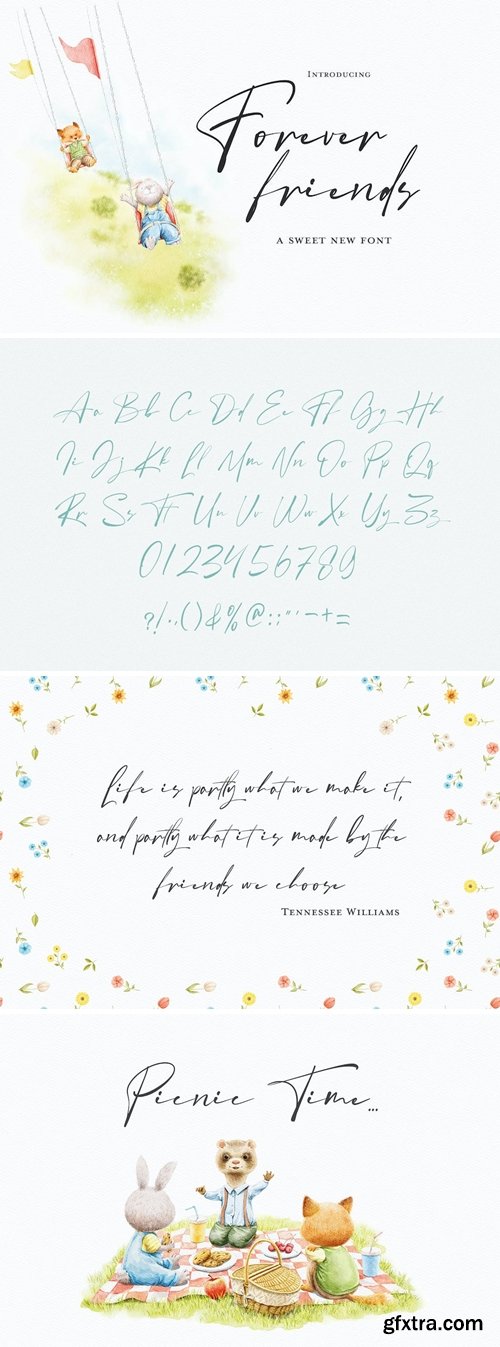 Introducing
Forever
friends
a sweet new font
Aa Bb Cc Dd Ee Ff Gg Hh
Ii Jj Kk Ll Mm Nn Oo Pp Qq
Rr Ss Tt Uu Vv Ww Xx Yy Zz
0123456789
?!.,()&%@:;"'-+=
Life is partly what we make it,
and partly what it is made by the
friends we choose
Tennessee Williams
Picnic Time...
gfxtra.com